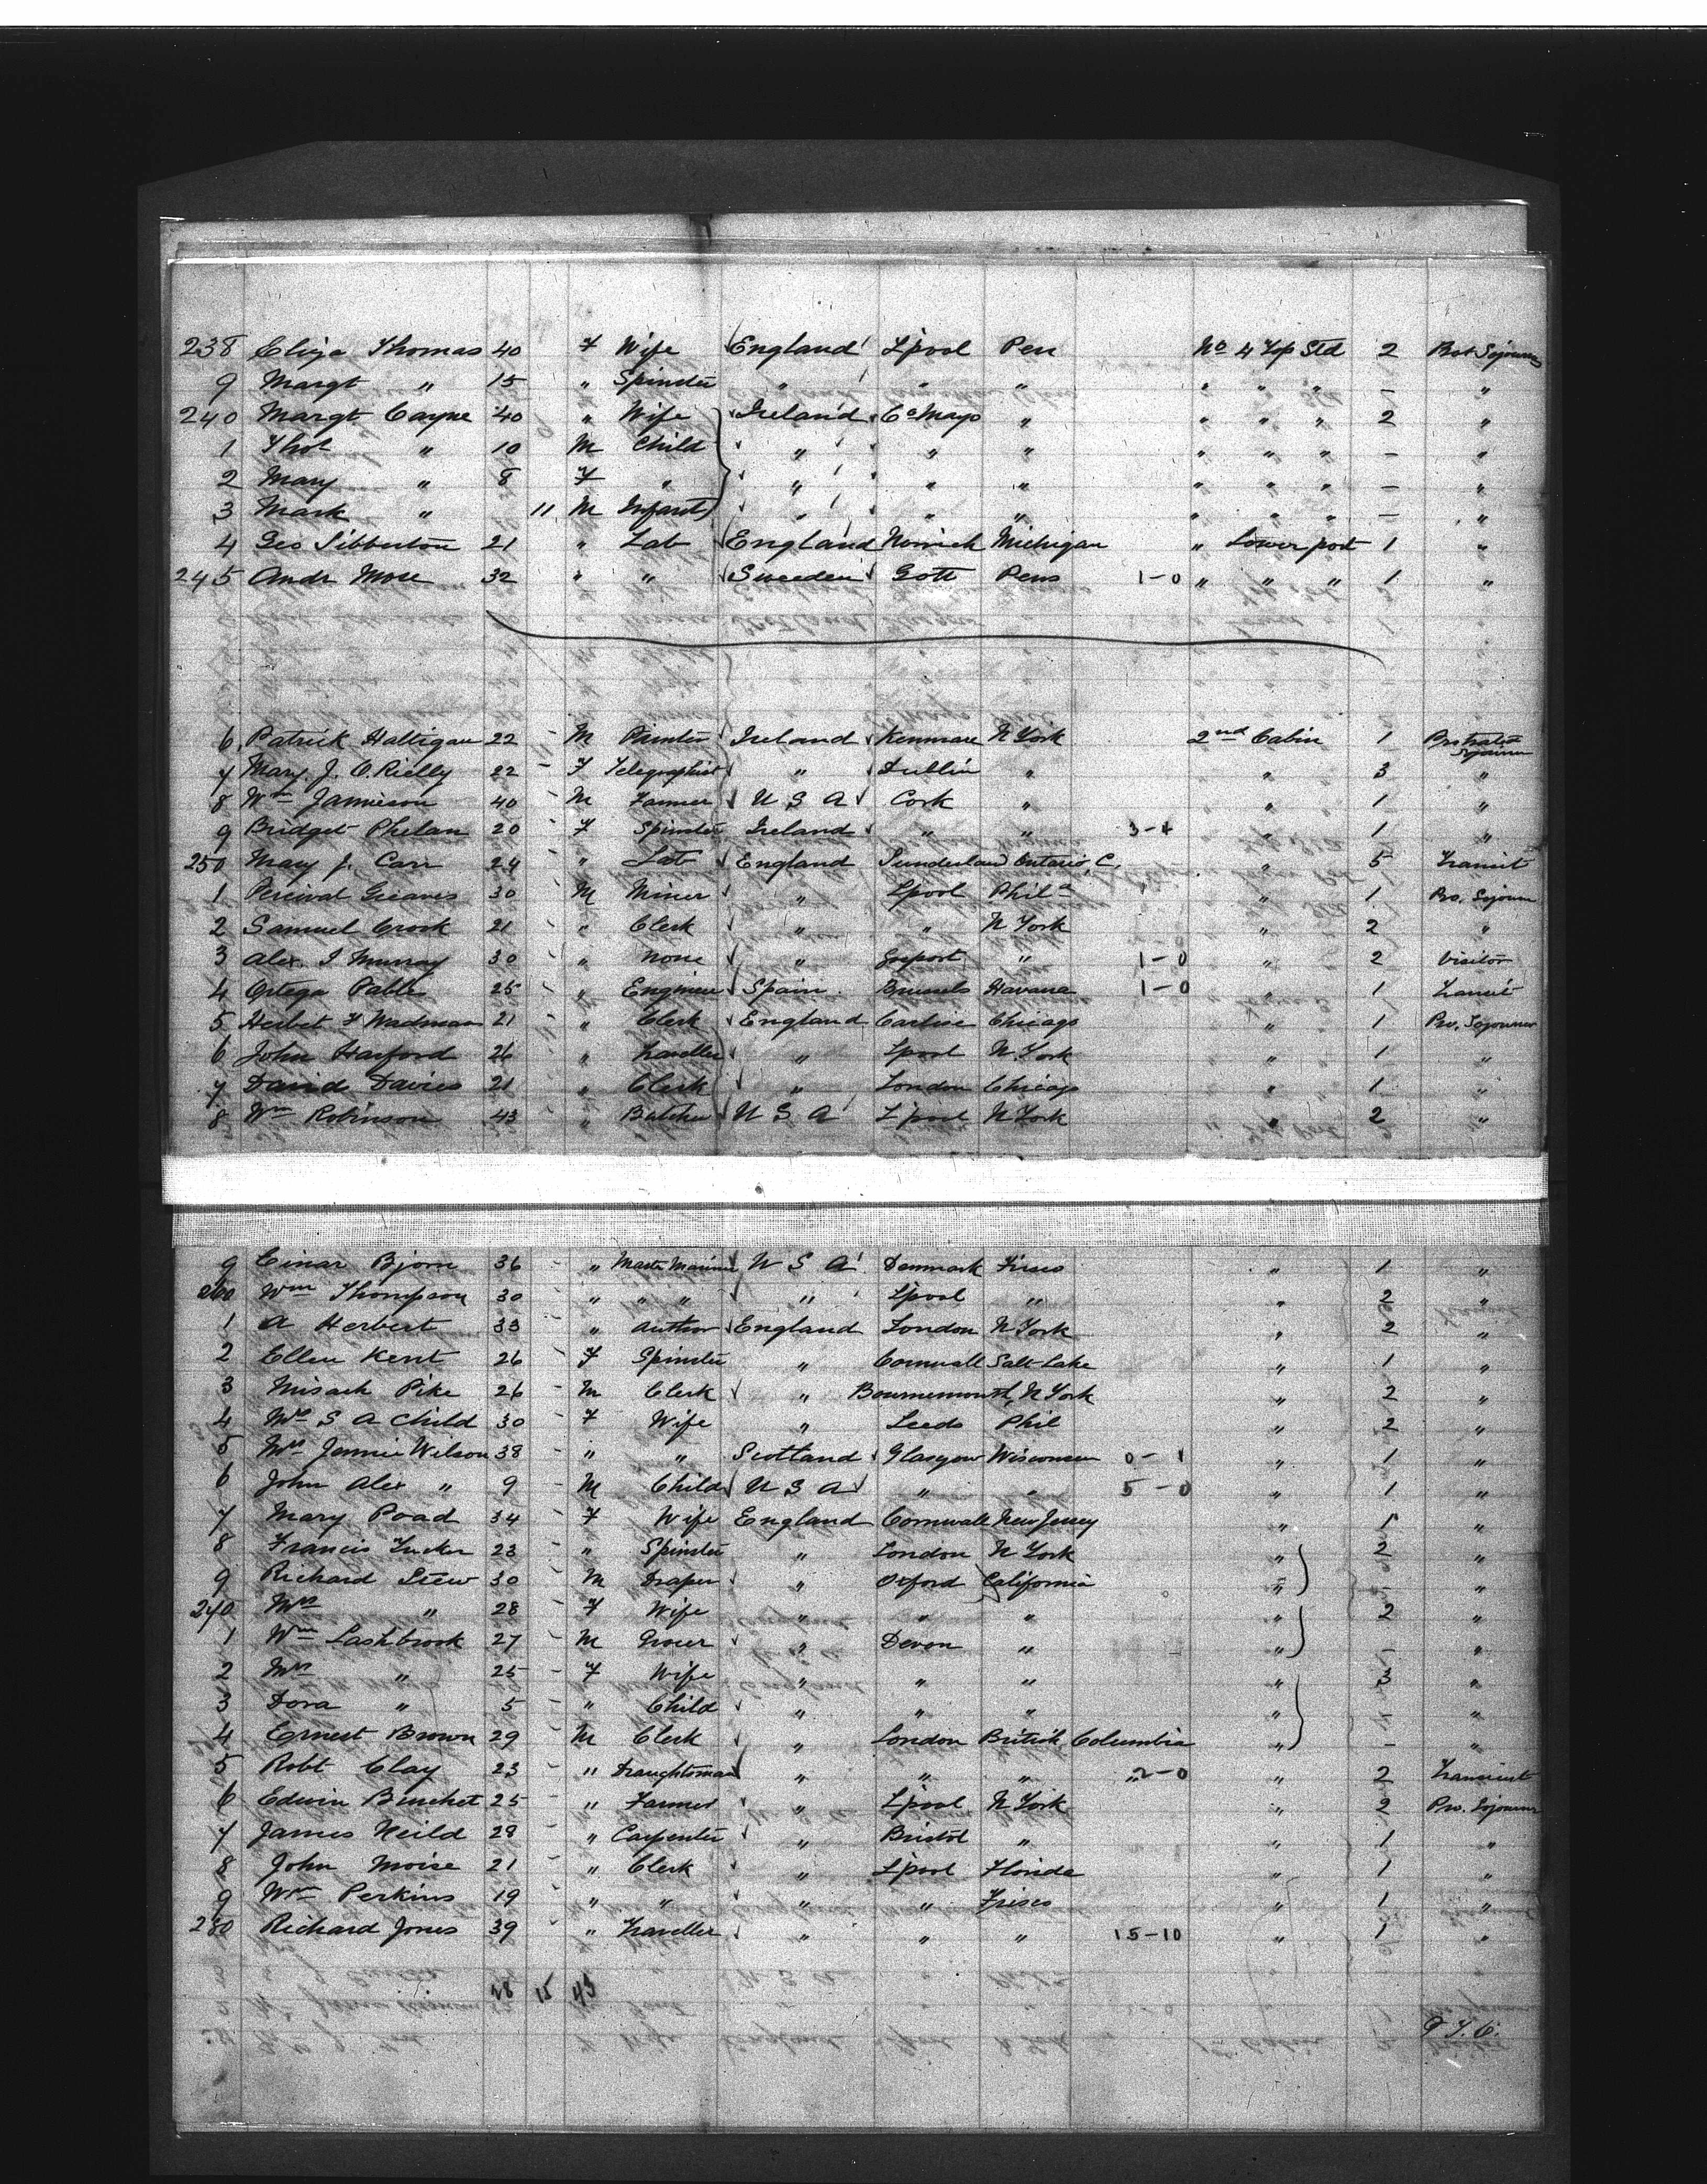 238 Eliza Thomas 40 F Wife England L'pool Pen No 4 Top Std 2 Prot Sojourner
9 Margt " 15 " Spinster " " " " " " - "
240 Margt Cayne 40 " Wife Ireland Co Mayo " " " " 2 "
1 Thos " 10 M Child " " " " " " - "
2 Mary " 8 F " " " " " " " - "
3 Mark " 11 M Infant " " " " " " - "
4 Geo Sibberton 21 " Lab England Norwich Michigan " Lower port 1 "
245 Andr More 32 " " Sweeden Gott Pens 1-0 " " " 1 "
6 Patrick Haltigan 22 - M Painter Ireland Kenmare N York 2nd Cabin 1 Protracted Sojourn
7 Mary J. O. Rielly 22 - F Telegraphist " Dublin " " 3 "
8 Wm Jamieson 40 - M Farmer U S A Cork " " 1 "
9 Bridget Phelan 20 - F Spinster Ireland " " 3-1 " 1 "
250 Mary J. Carr 24 - " Lab England Sunderland Ontario, C. " 5 Transit
1 Percival Greaves 30 - M Miner " L'pool Phila " 1 Pro. Sojourn
2 Samuel Crook 21 - " Clerk " " N York " 2 "
3 Alex. I Murray 30 - " None " Gosport " 1-0 " 2 Visitor
4 Ortega Pablo 25 - " Engineer Spain Brussels Havana 1-0 " 1 Transit
5 Herbet F Wadman 21 - " Clerk England Carlise Chicago " 1 Pro. Sojourner
6 John Harford 26 - " Traveller " L'pool N. York " 1 "
7 David Davies 21 - " Clerk " London Chicago " 1 "
8 Wm Robinson 43 " Butcher U S A L'pool N York " 2 "
9 Einar Bjorn 36 - " Master Mariner U S A Denmark Frisco " 1 "
260 Wm Thompson 30 - " " " " L'pool " " 2 "
1 A Herbert 33 " Author England London N York " 2 "
2 Ellen Kent 26 - F Spinster " Cornwall Salt Lake " 1 "
3 Misach Pike 26 - M Clerk " Bournemouth, N York " 2 "
4 Mrs S A Child 30 - F Wife " Leeds Phil " 2 "
5 Mrs Jennie Wilson 38 - " " Scotland Glasgow Wisconsin 0-1 " 1 "
6 John Alex " 9 - M Child U S A " " 5-0 " 1 "
7 Mary Poad 34 - F Wife England Cornwall New Jersey " 5 "
8 Francis Tucker 23 - " Spinster " London N York " 2 "
9 Richard Stew 30 - M Draper " Oxford California " - "
270 Mrs " 28 - F Wife " " " " 2 "
1 Wm Lashbrook 27 - M Grocer " Devon " " - "
2 Mrs " 25 - F Wife " " " " 3 "
3 Dora " 5 - " Child " " " " - "
4 Ernest Brown 29 - M Clerk " London British Columbia " - "
5 Robt Clay 23 - " Draughtsman " " " " 2-0 " 2 Transient
6 Edwin Burchet 25 - " Farmer " L'pool N York " 2 Pro. Sojourner
7 James Neild 28 - " Carpenter " Bristol " " 1 "
8 John Moise 21 - " Clerk " L'pool Florida " 1 "
9 Wm Perkins 19 - " " " " Frisco " 1 "
280 Richard Jones 39 " Traveller " " " 15-10 " 1 "
28 15 43
P. T. O.